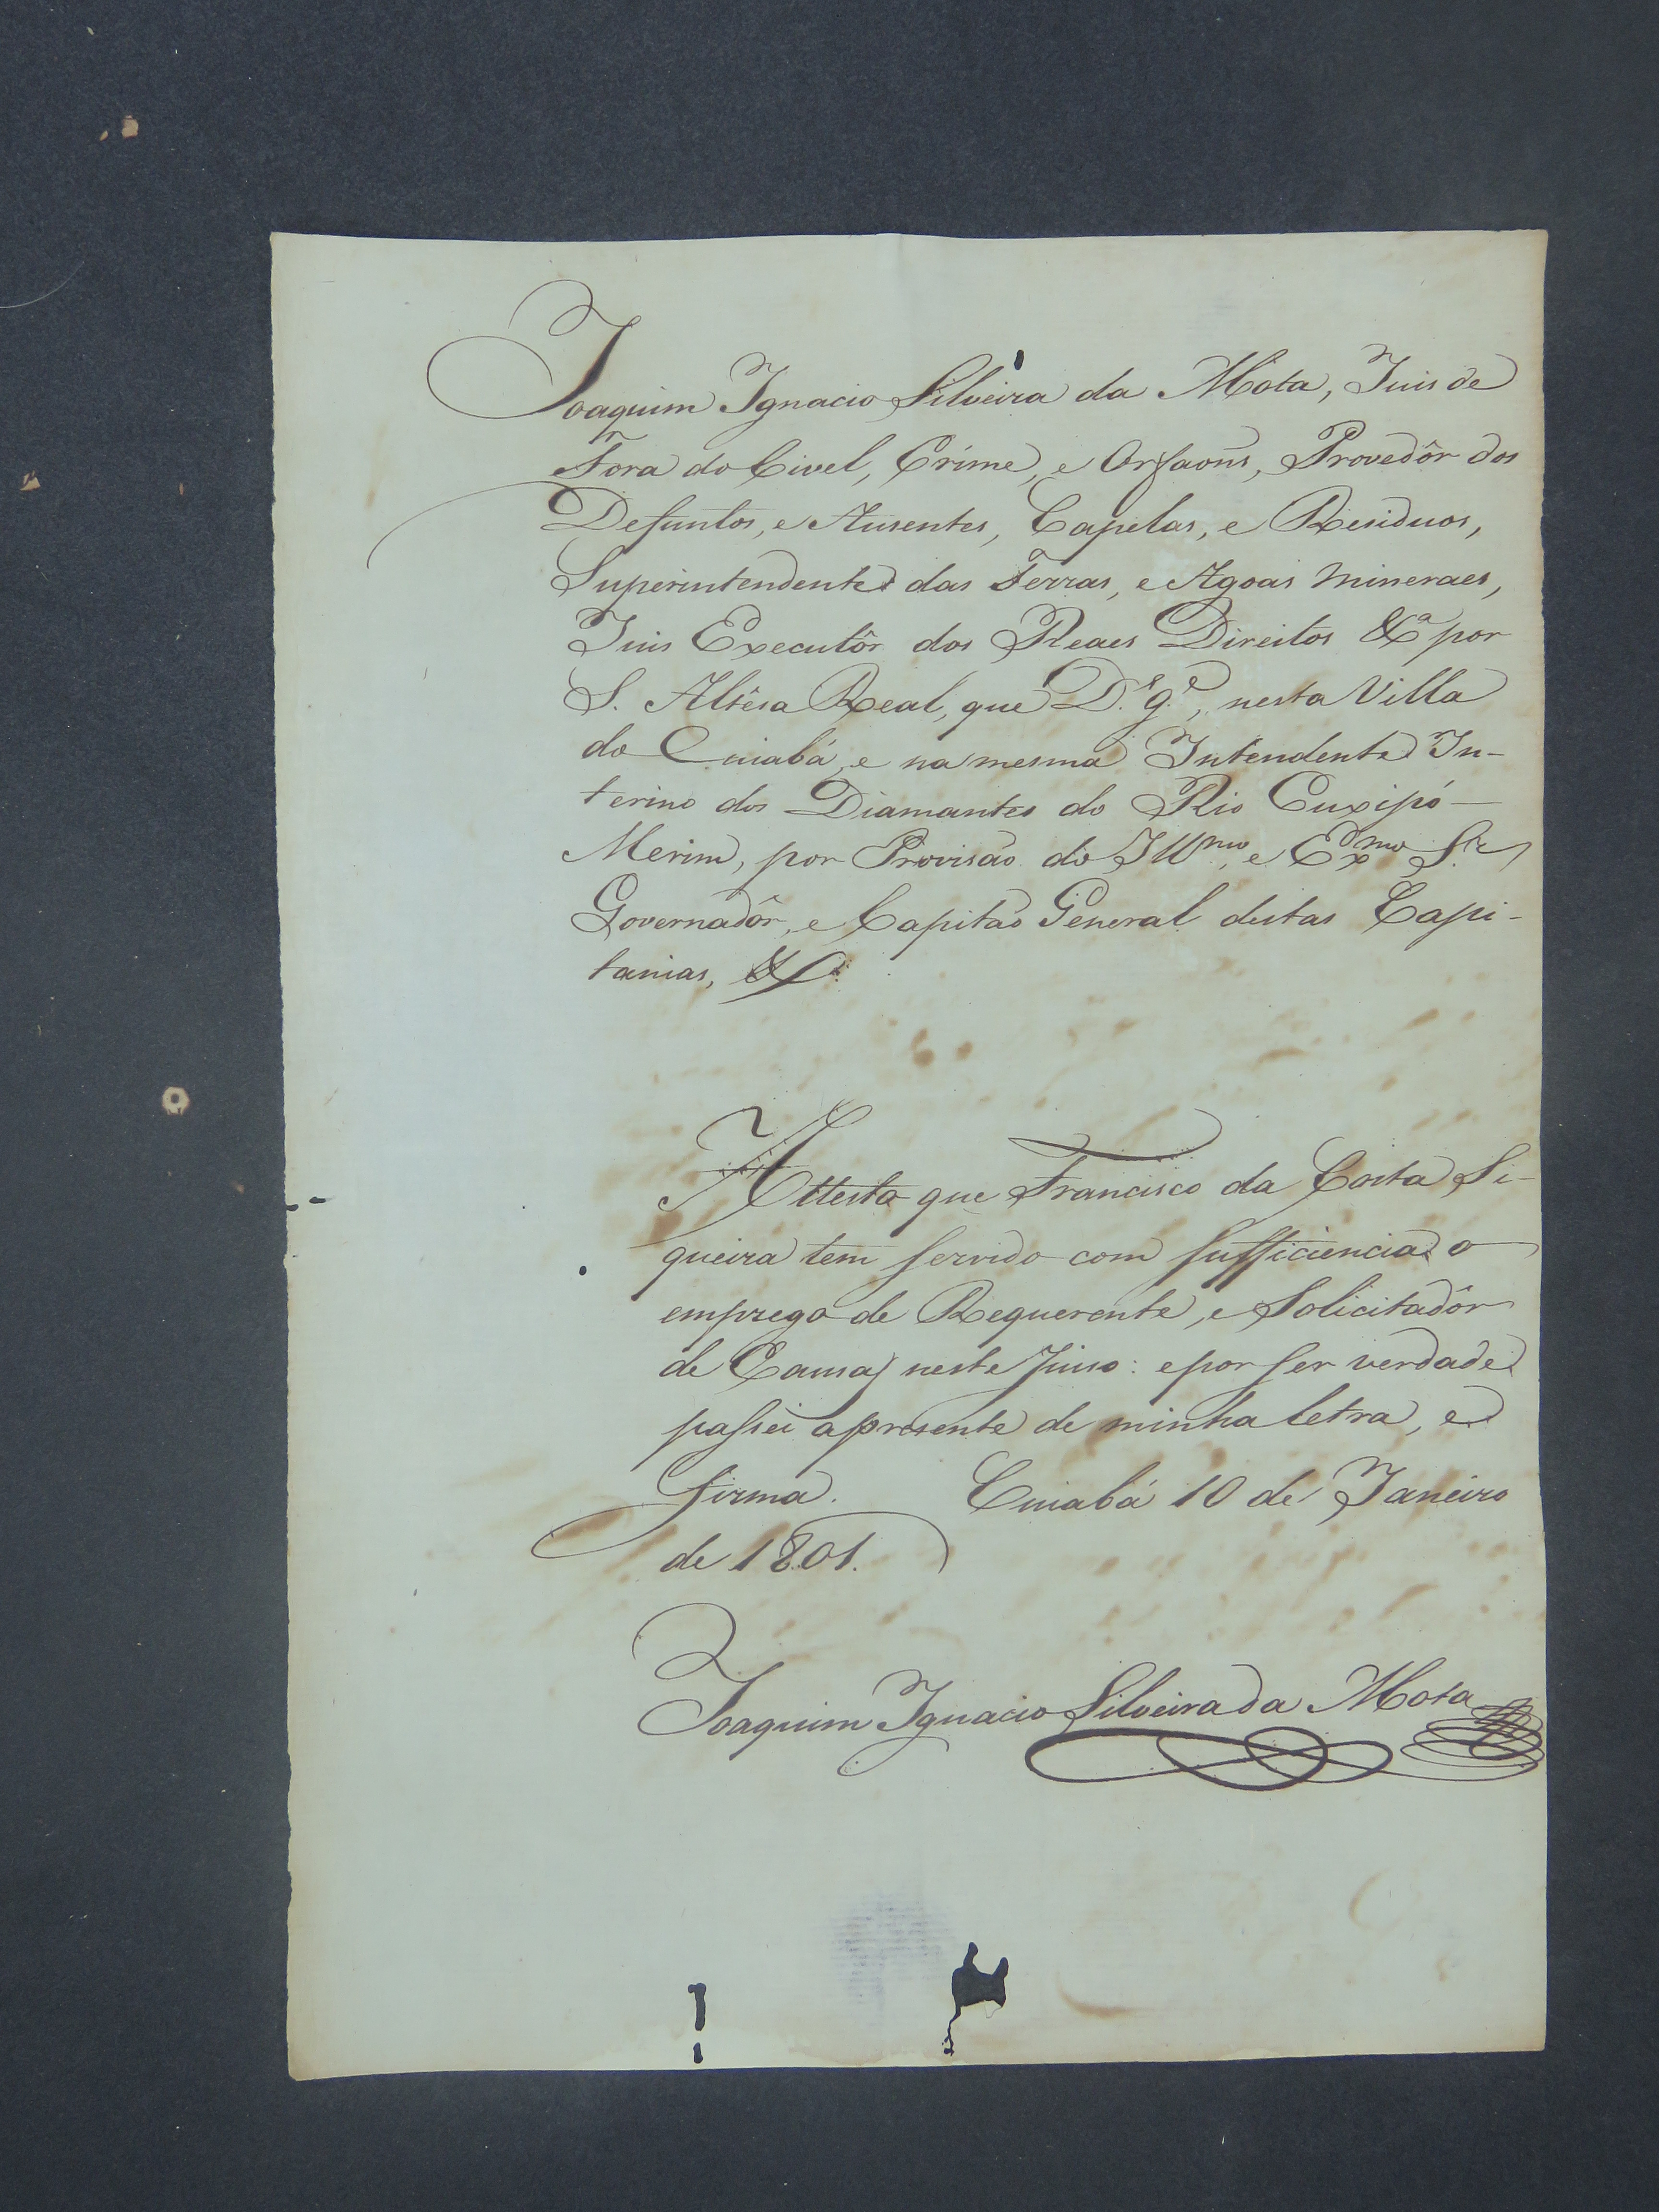 Joaquim Ignacio Silveira da Mota, Juis de
Fora do Civel, Crime, e Orfaons, Provedôr dos
Defuntos, e Ausentes, Capelas, e Residuos,
Superintendente das Terras, e Agoas mineraes,
Juis Executôr dos Reaes Direitos &ª por
S. Altêsa Real, que D.ˢ g.ᵉ, nesta Villa
do Cuiabá, e na mesma Intendente In-
terino dos Diamantes do Rio Cuxipó-
Merim, por Provisão do Illᵐᵒ, e Exᵐᵒ S.ʳ
Governadôr, e Capitão General destas Capi-
tanias, &ª
Attesto que Francisco da Costa Si-
queira tem servido com sufficiencia o
emprego de Requerente, e Solicitadôr
de Causas neste Juiso: e por ser verdade
passei a presente de minha letra, e
firma. Cuiabá 10 de Janeiro
de 1801.
Joaquim Ignacio Silveira da Mota